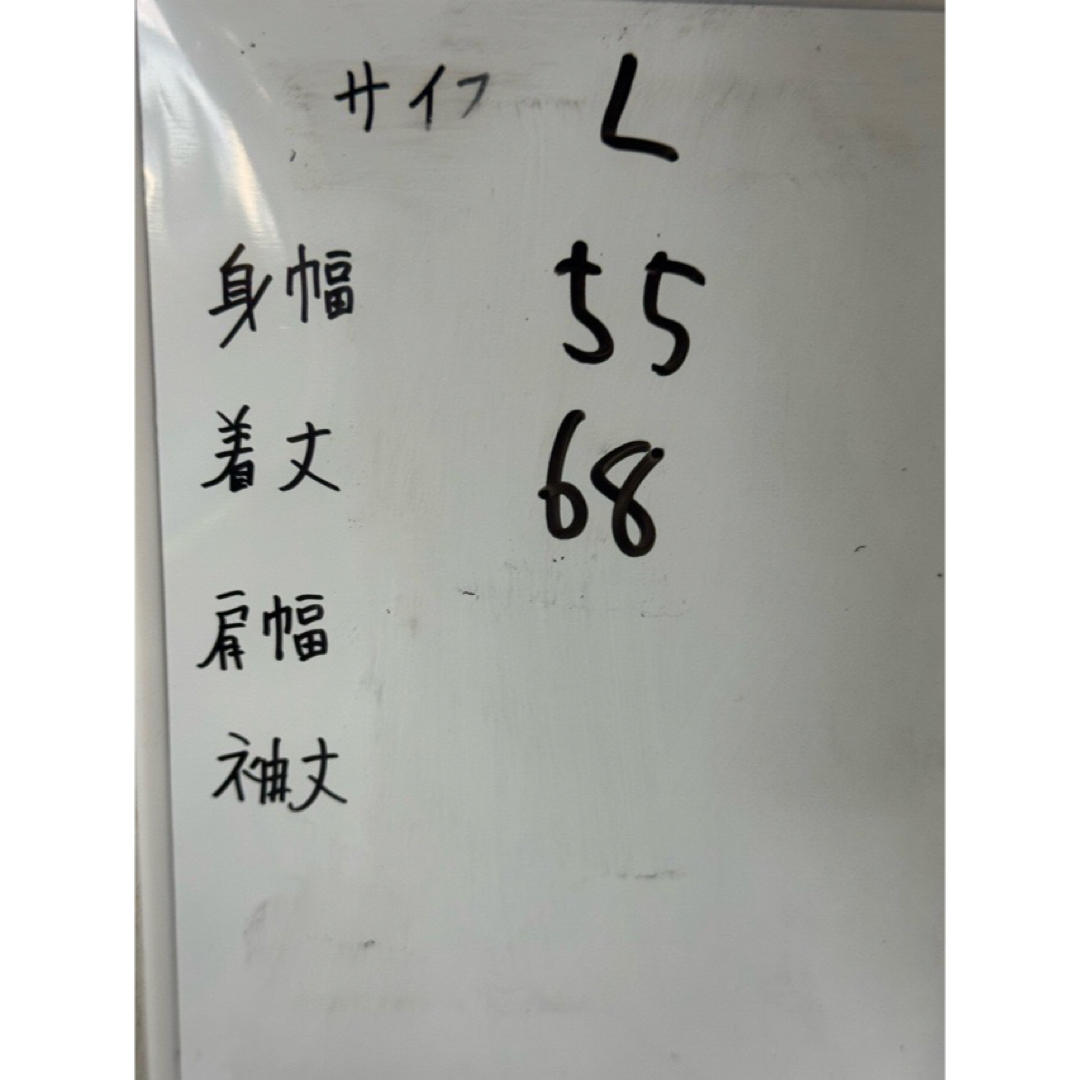 サイフ L
身幅 55
着丈 68
肩幅
袖丈